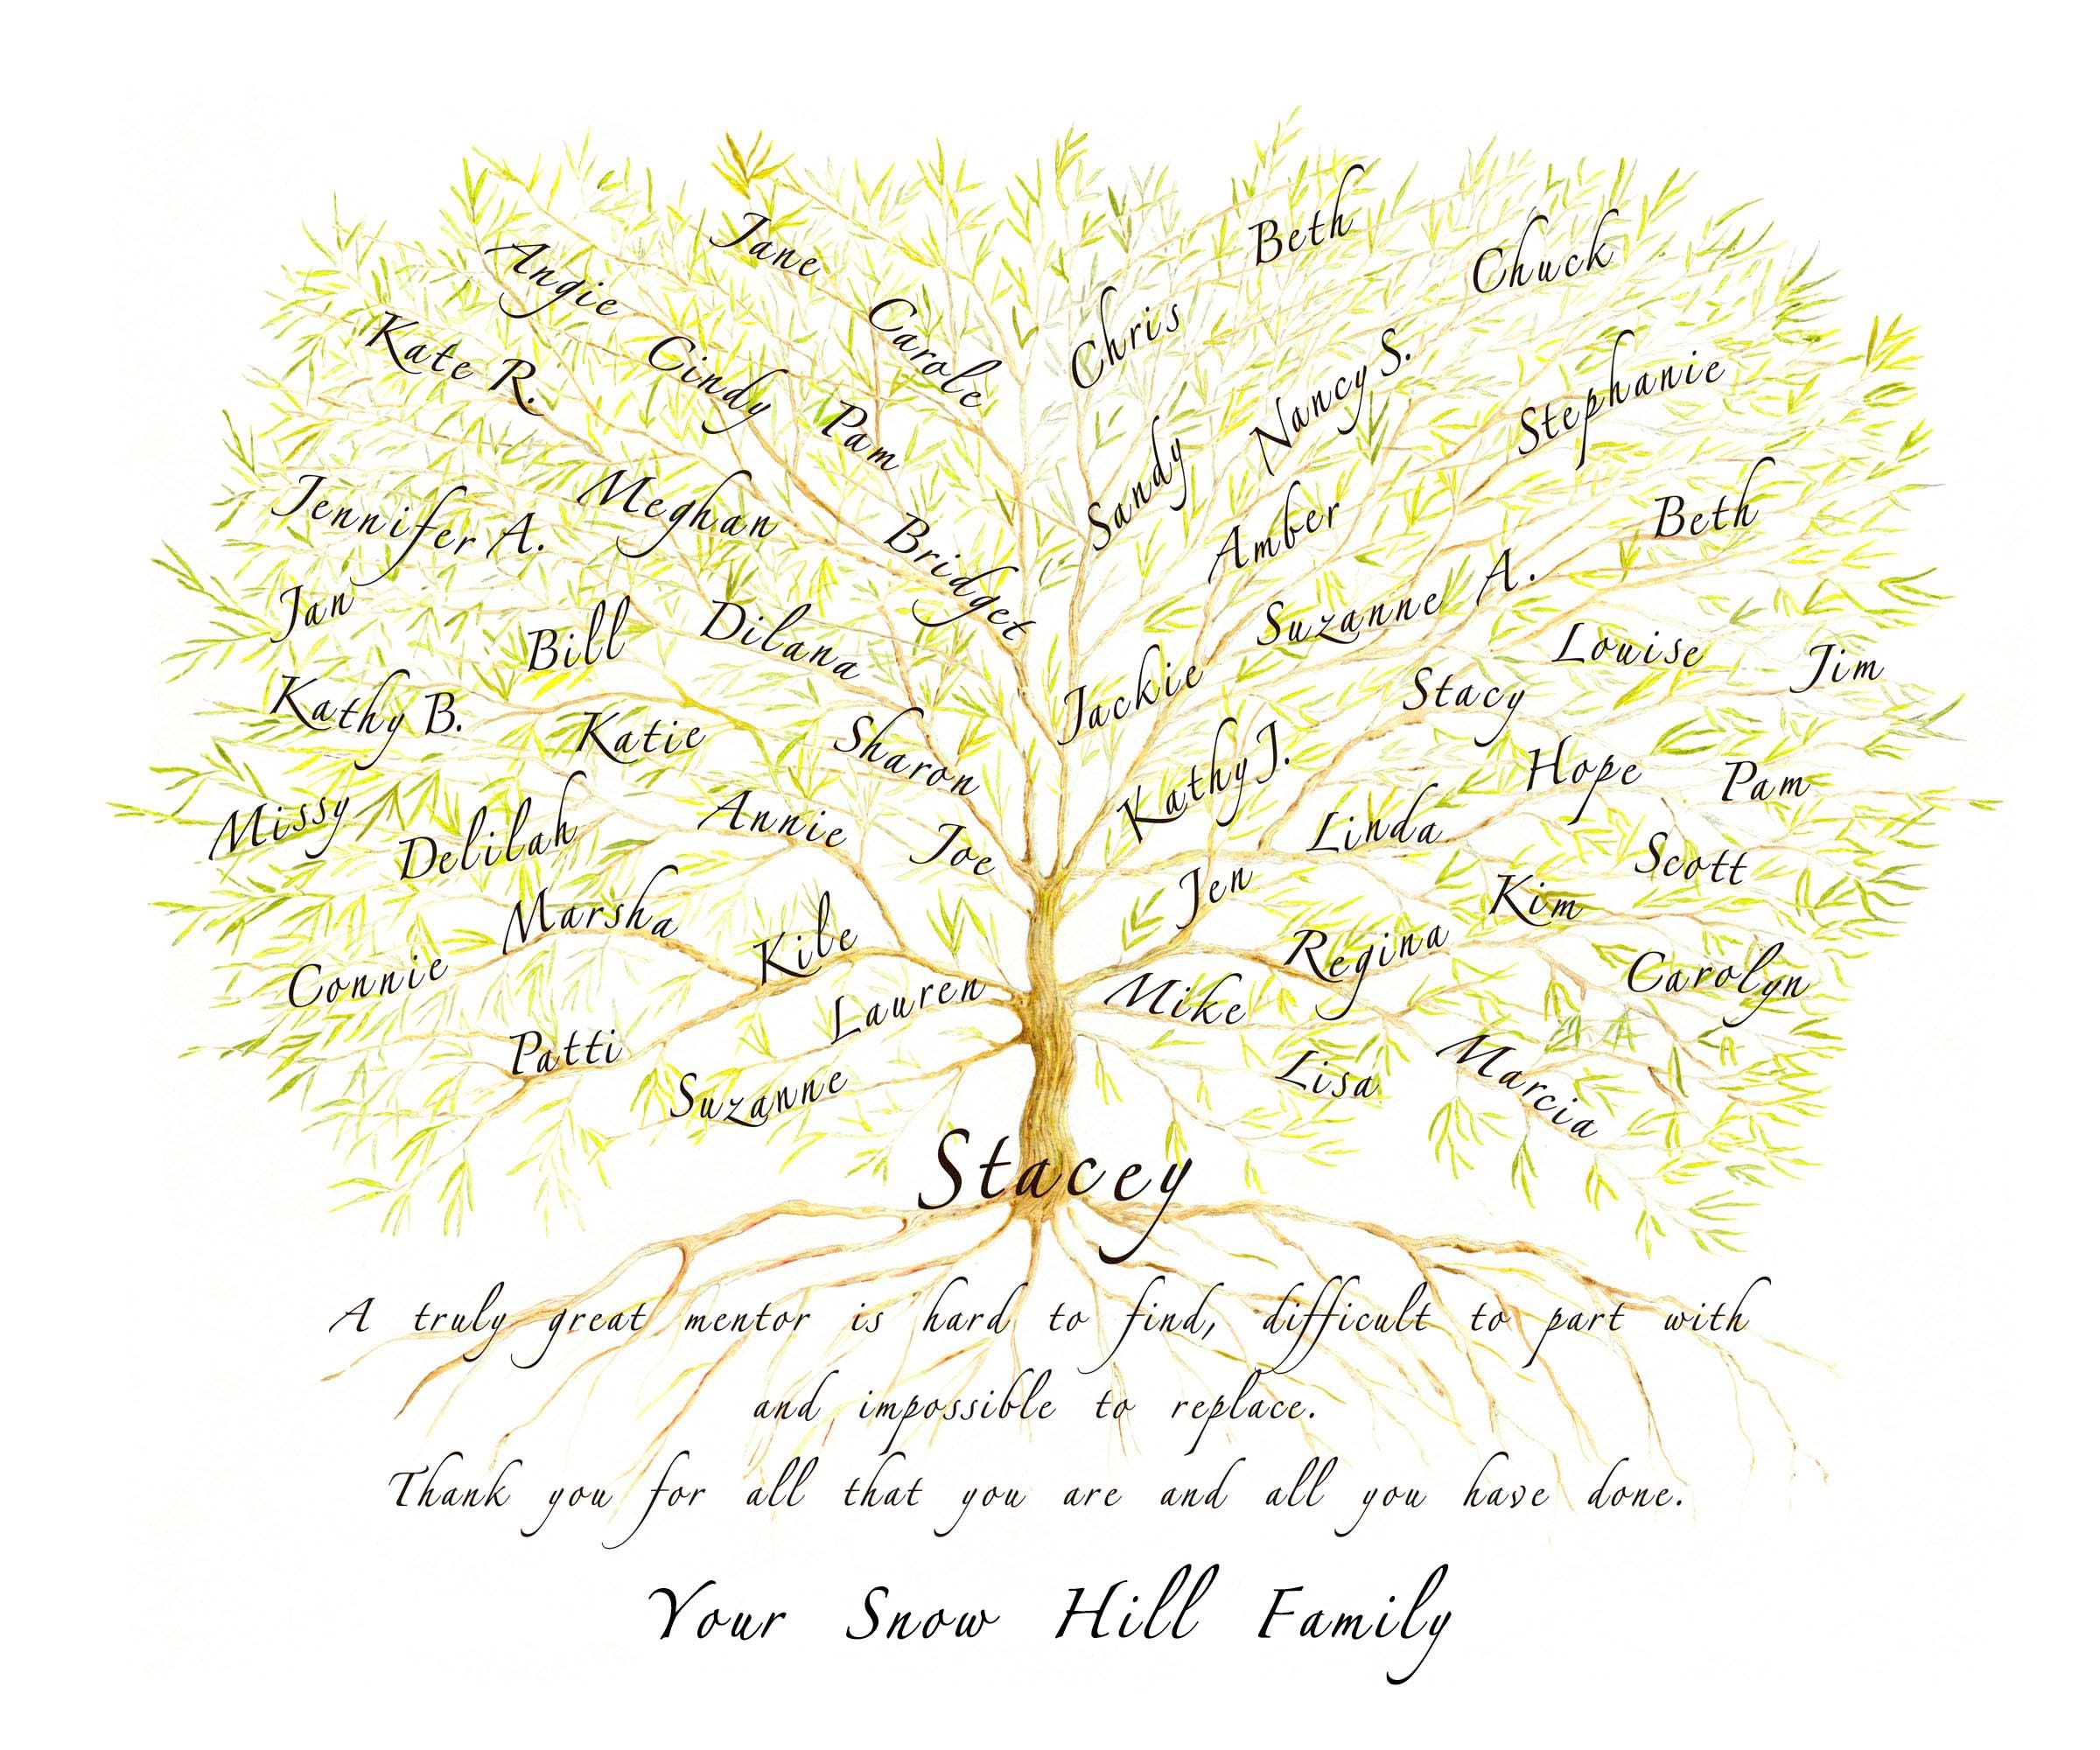 Jane
Beth
Chuck
Angie
Carole
Chris
Kate R.
Cindy
Nancy S.
Stephanie
Pam
Sandy
Jennifer A.
Meghan
Bridget
Amber
Beth
Jan
Bill
Dilana
Suzanne A.
Louise
Jim
Kathy B.
Katie
Sharon
Jackie
Stacy
Missy
Delilah
Annie
Joe
Kathy J.
Linda
Hope
Pam
Scott
Marsha
Kile
Jen
Kim
Connie
Lauren
Mike
Regina
Carolyn
Patti
Suzanne
Lisa
Marcia
Stacey
A truly great mentor is hard to find, difficult to part with
and impossible to replace.
Thank you for all that you are and all you have done.
Your Snow Hill Family